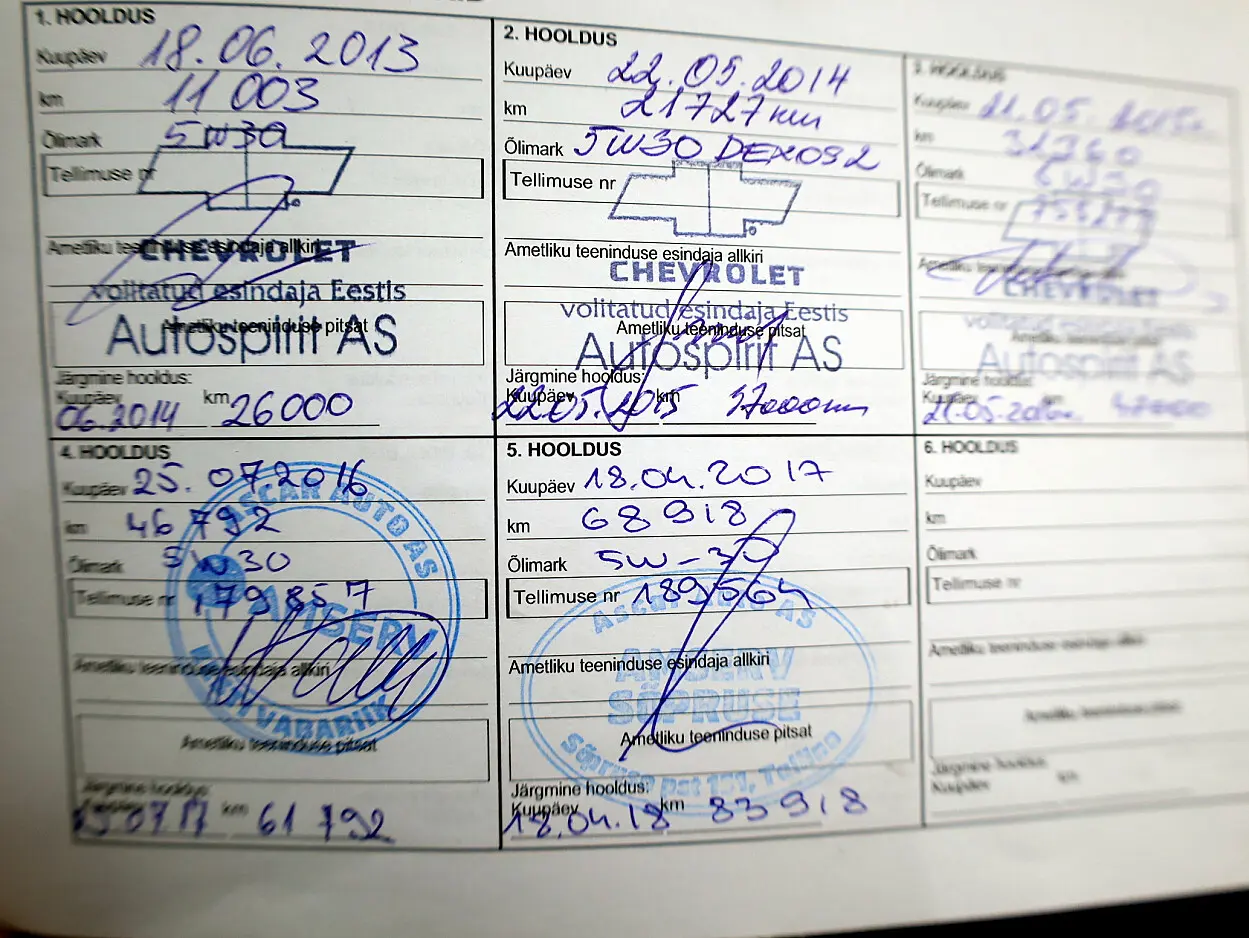 1. HOOLDUS
Kuupäev 18.06.2013
km 11 003
Õlimark 5W30
Tellimuse nr
Ametliku teeninduse esindaja allkiri
CHEVROLET
volitatud esindaja Eestis
Ametliku teeninduse pitsat
Autospirit AS
Järgmine hooldus:
Kuupäev 06.2014 km 26000
2. HOOLDUS
Kuupäev 22.05.2014
km 21727 km
Õlimark 5W30 DEXOS2
Tellimuse nr
Ametliku teeninduse esindaja allkiri
CHEVROLET
volitatud esindaja Eestis
Ametliku teeninduse pitsat
Autospirit AS
Järgmine hooldus:
Kuupäev 22.05.2015 km 37000km
3. HOOLDUS
Kuupäev 21.05.2015
km 31360
Õlimark 5W30
Tellimuse nr
Ametliku
CHEVROLET
volitatud esindaja Eestis
Ametliku teeninduse pitsat
Autospirit AS
Järgmine hooldus:
Kuupäev 21.05.2016 km 47000
4. HOOLDUS
Kuupäev 25.07.2016
km 46 792
Õlimark 5W30
Tellimuse nr 179857
ASCAR AUTO AS
AMSERV
EESTI VABARIIK
Ametliku teeninduse esindaja allkiri
Ametliku teeninduse pitsat
Järgmine hooldus:
Kuupäev 25.07.17 km 61 792
5. HOOLDUS
Kuupäev 18.04.2017
km 68918
Õlimark 5W-30
Tellimuse nr 189564
Ascar Auto AS
Ametliku teeninduse esindaja allkiri
AMSERV
SÕPRUSE
Ametliku teeninduse pitsat
Sõpruse pst 151, Tallinn
Järgmine hooldus:
Kuupäev 18.04.18 km 83918
6. HOOLDUS
Kuupäev
km
Õlimark
Tellimuse nr
Ametliku teeninduse esindaja allkiri
Ametliku teeninduse pitsat
Järgmine hooldus:
Kuupäev km